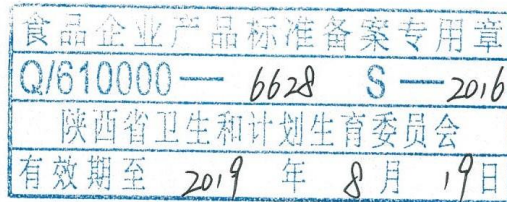 食品企业产品标准备案专用章
Q/610000— 6628 S—2016
陕西省卫生和计划生育委员会
有效期至 2019 年 8 月 19 日